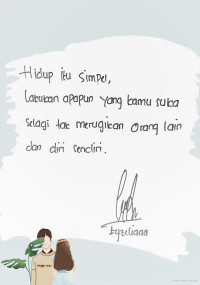 Hidup itu simpel,
lakukan apapun yang kamu suka
selagi tak merugikan orang lain
dan diri sendiri.